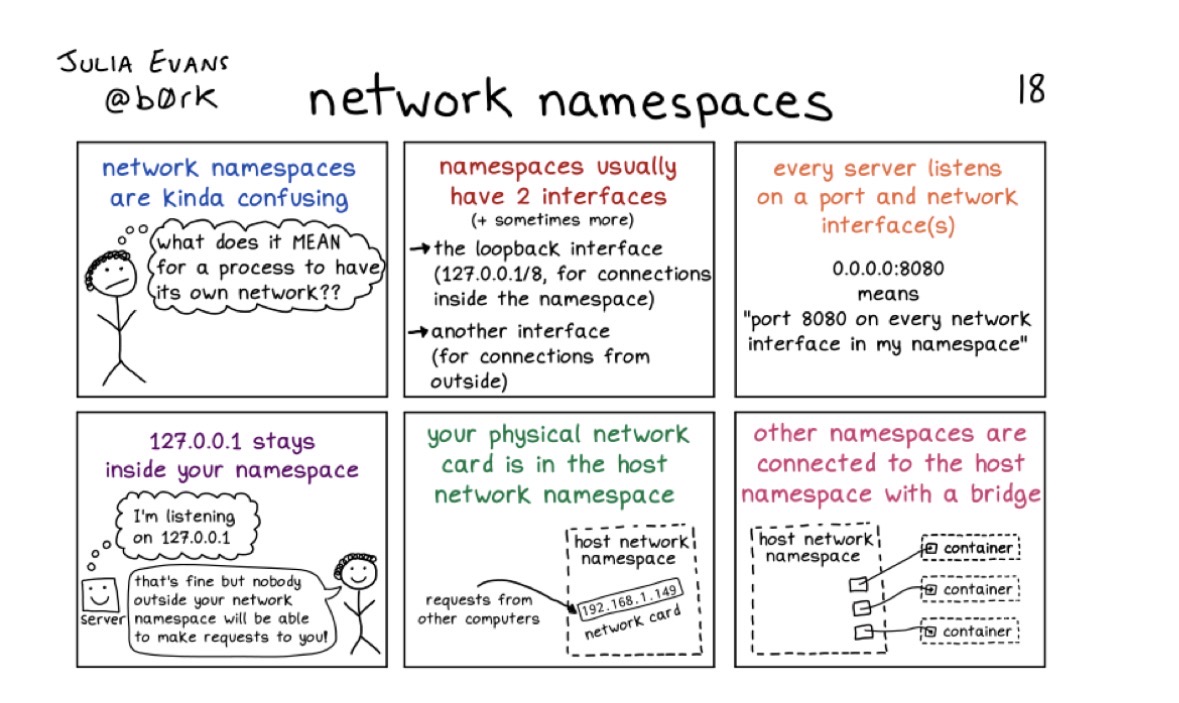 JULIA EVANS
@b0rk
network namespaces
18
network namespaces
are kinda confusing
what does it MEAN
for a process to have
its own network??
namespaces usually
have 2 interfaces
(+ sometimes more)
→ the loopback interface
(127.0.0.1/8, for connections
inside the namespace)
→ another interface
(for connections from
outside)
every server listens
on a port and network
interface(s)
0.0.0.0:8080
means
"port 8080 on every network
interface in my namespace"
127.0.0.1 stays
inside your namespace
I'm listening
on 127.0.0.1
server
that's fine but nobody
outside your network
namespace will be able
to make requests to you!
your physical network
card is in the host
network namespace
requests from
other computers
host network
namespace
192.168.1.149
network card
other namespaces are
connected to the host
namespace with a bridge
host network
namespace
container
container
container